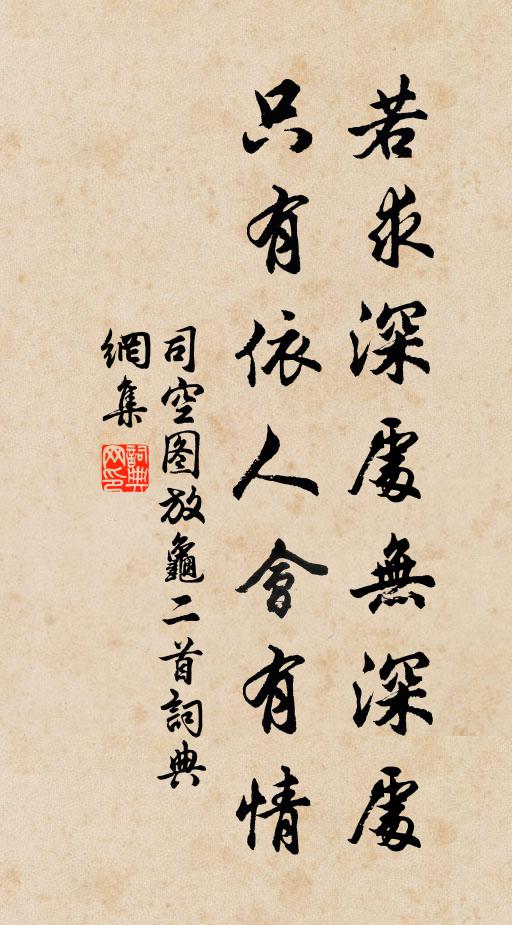 若求深處無深處
只有依人會有情
司空图放龜二首詞典
網集
詞典网印